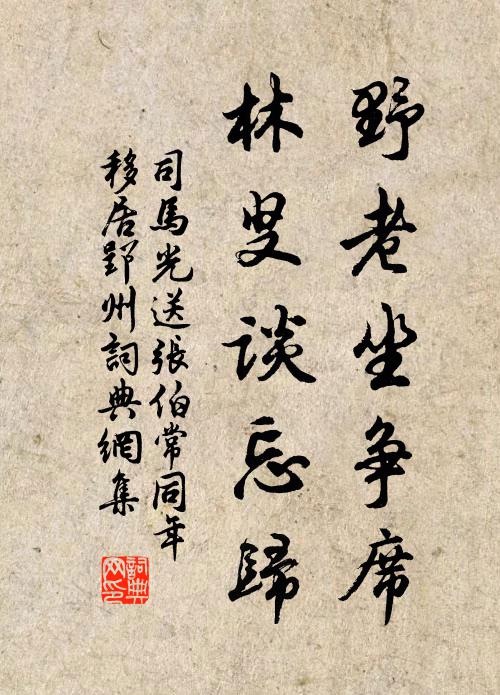 野老坐争席
林叟談忘歸
司馬光送張伯常同年
移居郢州詞典網集
詞典
网印